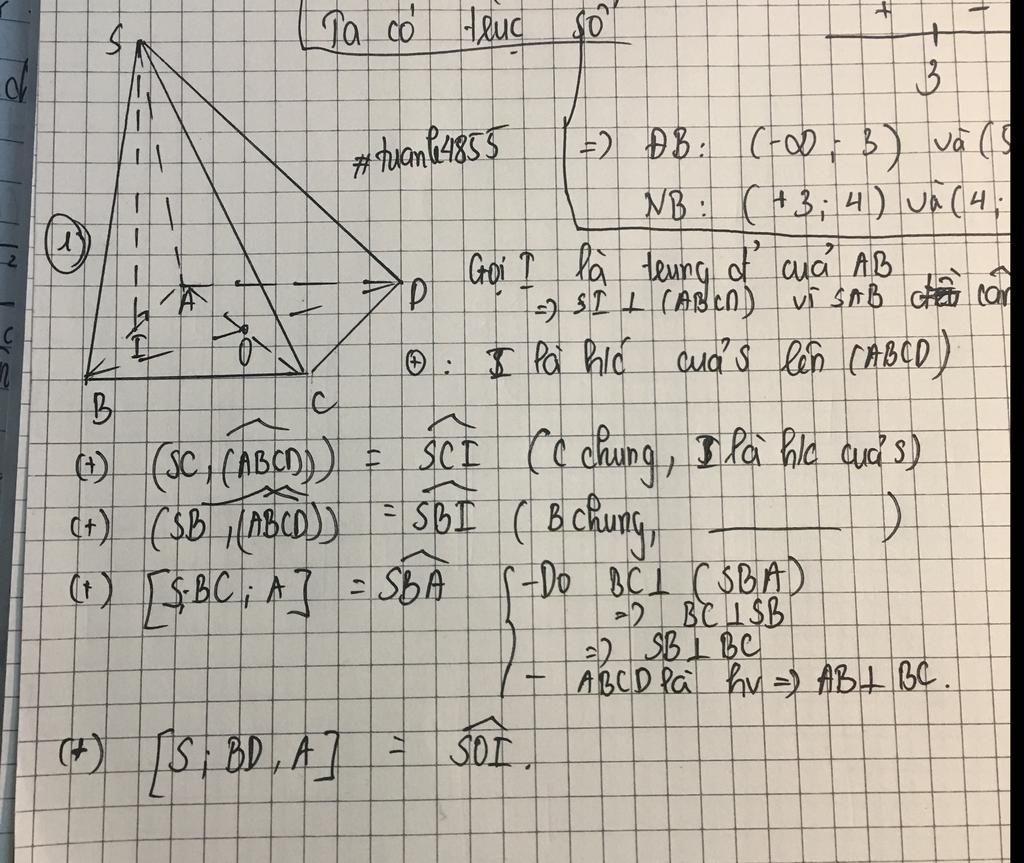 Ta có trục số
+ -
3
S
#tuanle4855
=> ĐB: (-∞; 3) và (5
NB: (+3; 4) và (4;
1
A
D
I
O
B
C
Gọi I là trung đ' của AB
=> SI ⊥ (ABCD) vì SAB cân
(+): I là h/c của S lên (ABCD)
(+) (SC, (ABCD)) = SCI (C chung, I là h/c của S)
(+) (SB, (ABCD)) = SBI (B chung, ______ )
(+) [S; BC; A] = SBA { - Do BC ⊥ (SBA)
=> BC ⊥ SB
=> SB ⊥ BC
- ABCD là hv => AB ⊥ BC.
(+) [S; BD, A] = SOI.